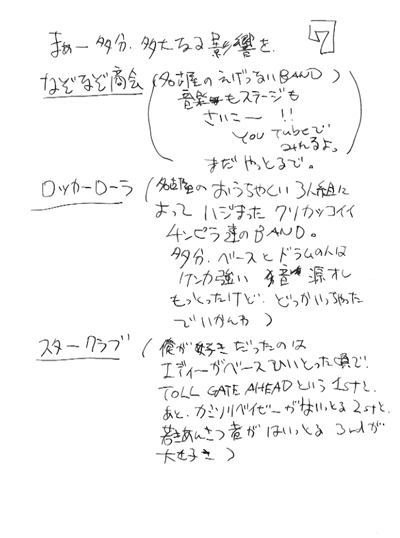 まぁー多分、多大なる影響を、 7
なぞなぞ商会 (名古屋のえげつないBAND)
音楽もステージも
さいこー !!
YOU TUBEで
みれるよ。
まだやっとるで。
ロッカーローラ (名古屋のおうちゃくい3人組に
よってハジまったクソカッコイイ
チンピラ達のBAND。
多分、ベースとドラムの人は
ケンカ強い 音源オレ
もっとったけど、どっかいっちゃった
でいかんわ )
スタークラブ (俺が好きだったのは
エディーがベースひいとった頃で、
TOLL GATE AHEADという1stと、
あと、カミソリベイビーがはいっとる2ndと、
若きあんさつ者がはいっとる3rdが
大好き )